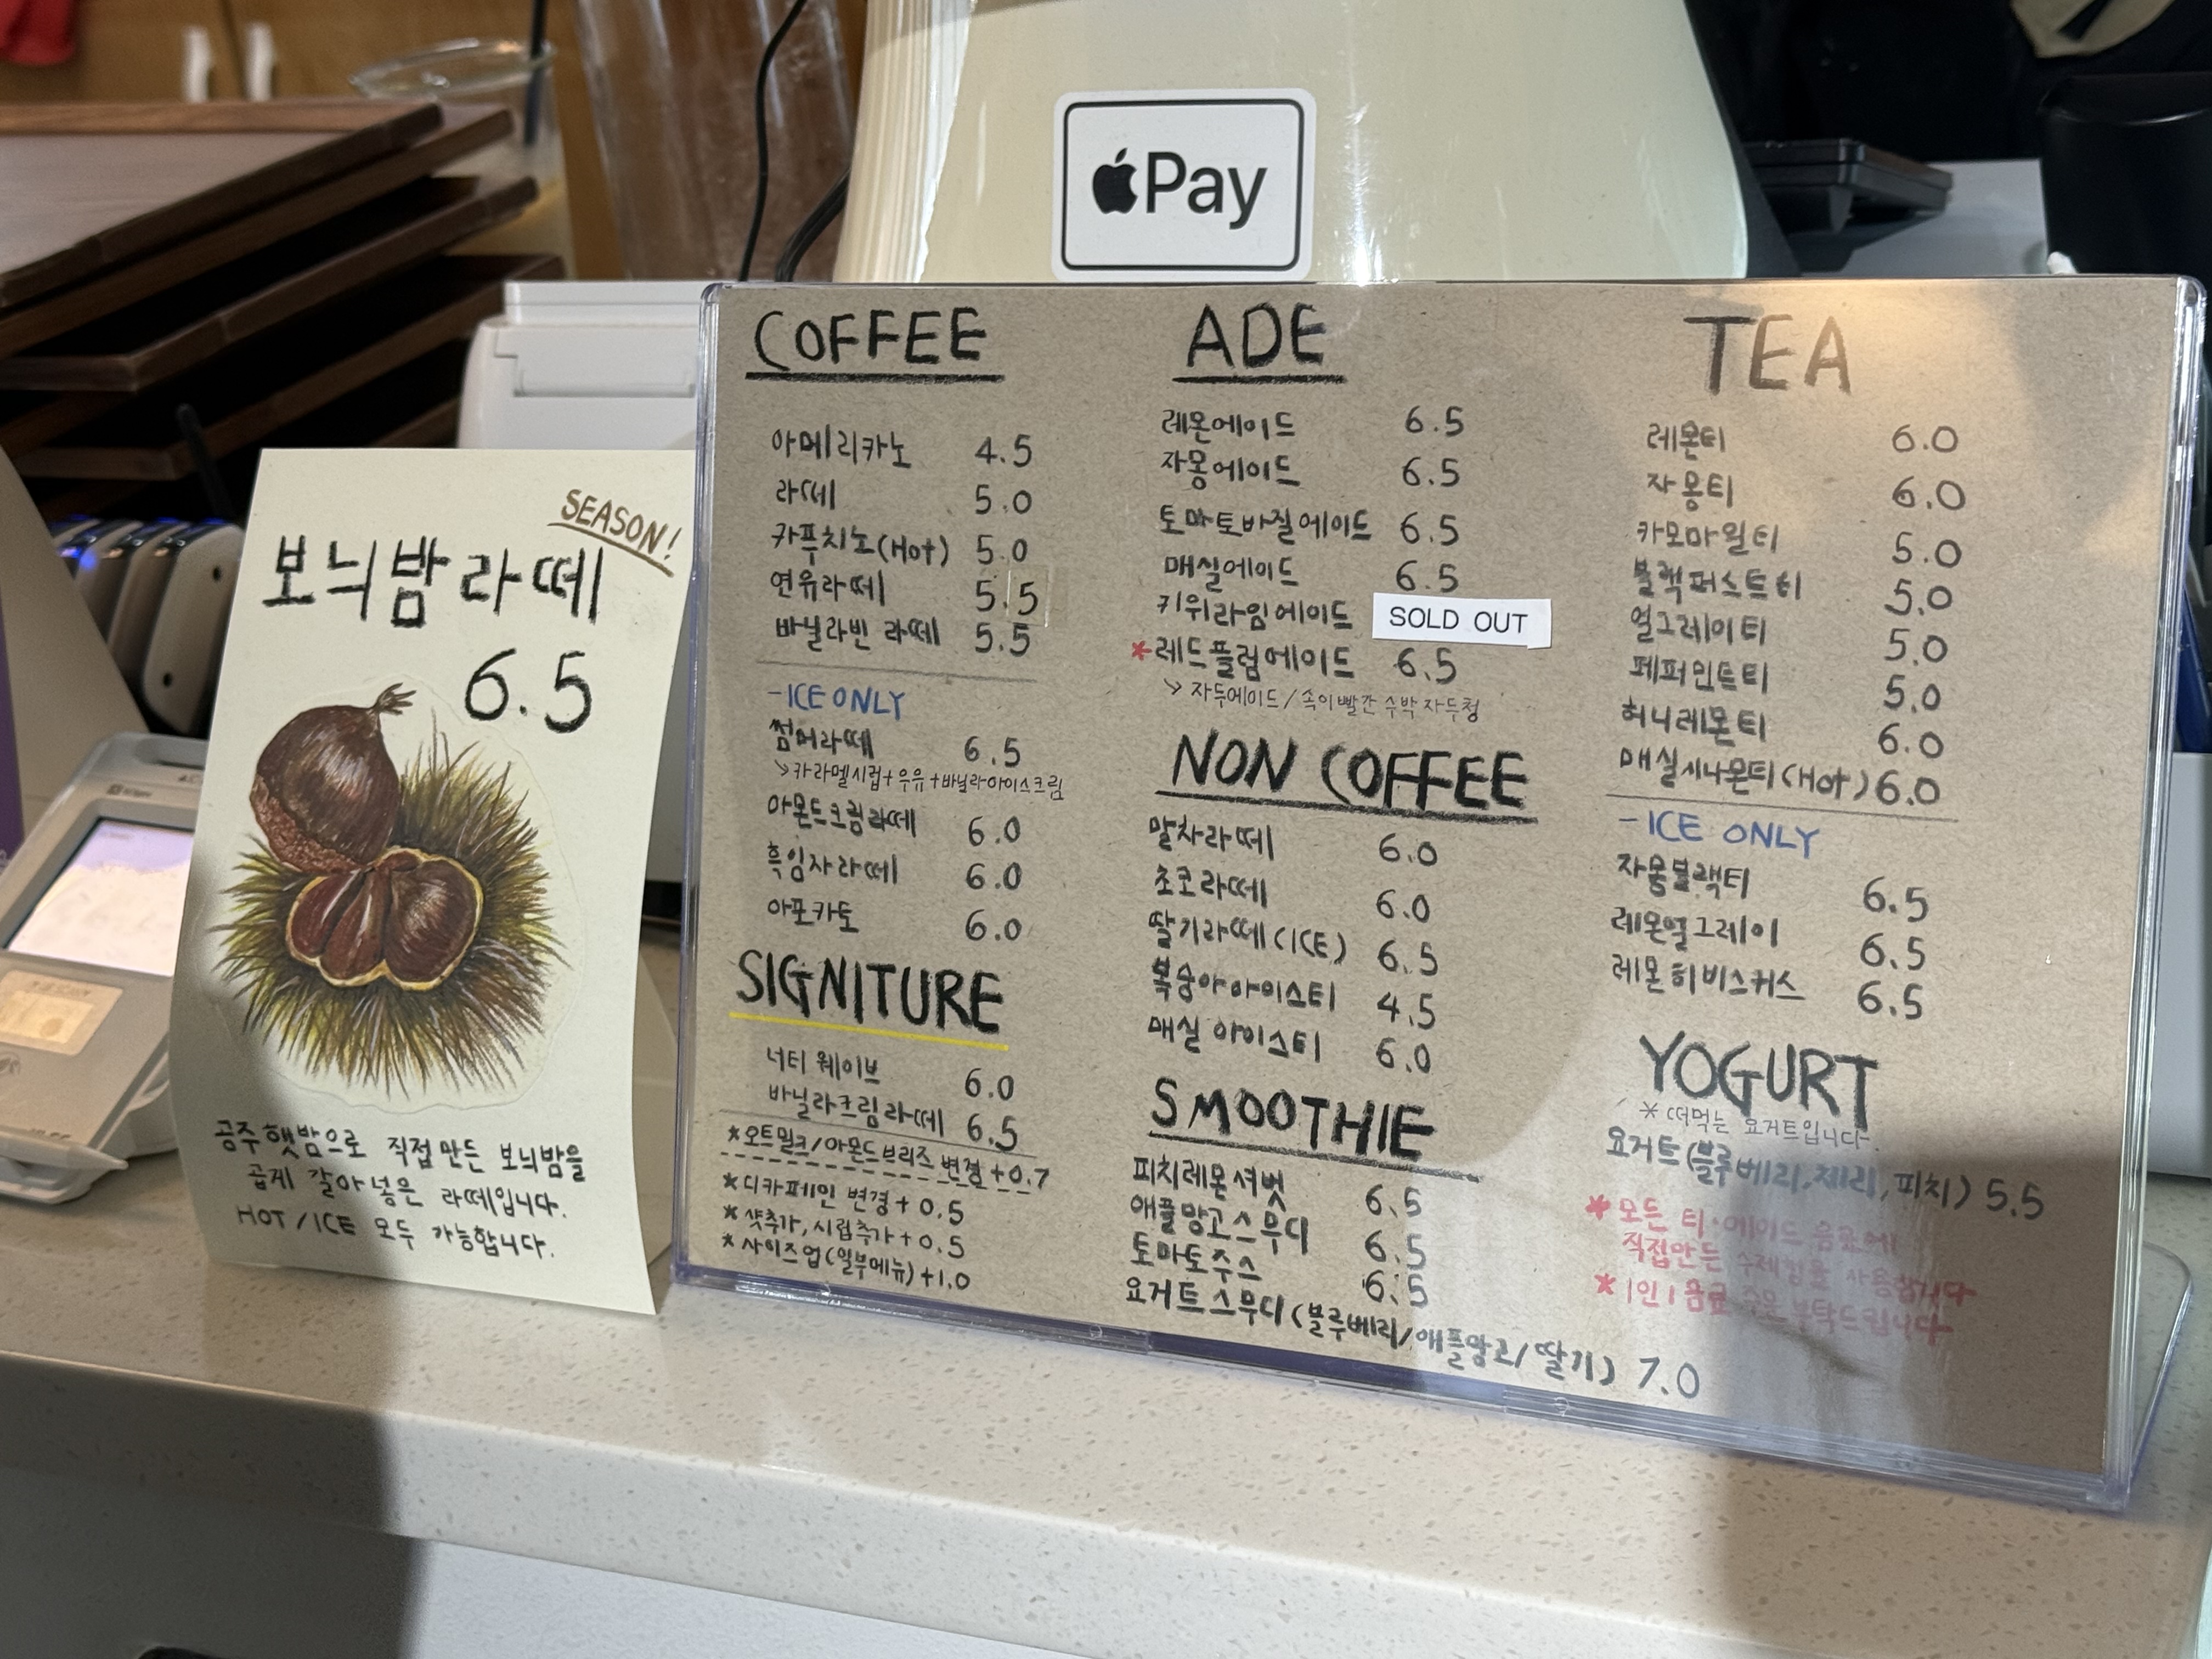 Pay
SEASON!
보늬밤라떼
6.5
공주햇밤으로 직접만든 보늬밤을
곱게 갈아넣은 라떼입니다.
HOT/ICE 모두 가능합니다.
COFFEE
아메리카노 4.5
라떼 5.0
카푸치노(Hot) 5.0
연유라떼 5.5
바닐라빈 라떼 5.5
-ICE ONLY
썸머라떼 6.5
↘카라멜시럽+우유+바닐라아이스크림
아몬드크림라떼 6.0
흑임자라떼 6.0
아포카토 6.0
SIGNITURE
너티 웨이브 6.0
바닐라크림라떼 6.5
*오트밀크/아몬드브리즈 변경+0.7
*디카페인 변경+0.5
*샷추가,시럽추가+0.5
*사이즈업(일부메뉴)+1.0
ADE
레몬에이드 6.5
자몽에이드 6.5
토마토바질에이드 6.5
매실에이드 6.5
키위라임에이드 SOLD OUT
*레드플럼에이드 6.5
↘자두에이드/속이빨간 수박자두청
NON COFFEE
말차라떼 6.0
초코라떼 6.0
딸기라떼(ICE) 6.5
복숭아아이스티 4.5
매실 아이스티 6.0
SMOOTHIE
피치레몬셔벗 6.5
애플망고스무디 6.5
토마토주스 6.5
요거트스무디(블루베리/애플망고/딸기) 7.0
TEA
레몬티 6.0
자몽티 6.0
카모마일티 5.0
블랙퍼스트티 5.0
얼그레이티 5.0
페퍼민트티 5.0
허니레몬티 6.0
매실시나몬티(Hot) 6.0
-ICE ONLY
자몽블랙티 6.5
레몬얼그레이 6.5
레몬히비스커스 6.5
YOGURT
*떠먹는 요거트입니다.
요거트(블루베리,체리,피치) 5.5
*모든 티·에이드 음료에
직접만든 수제청을 사용합니다
*1인1음료 주문 부탁드립니다